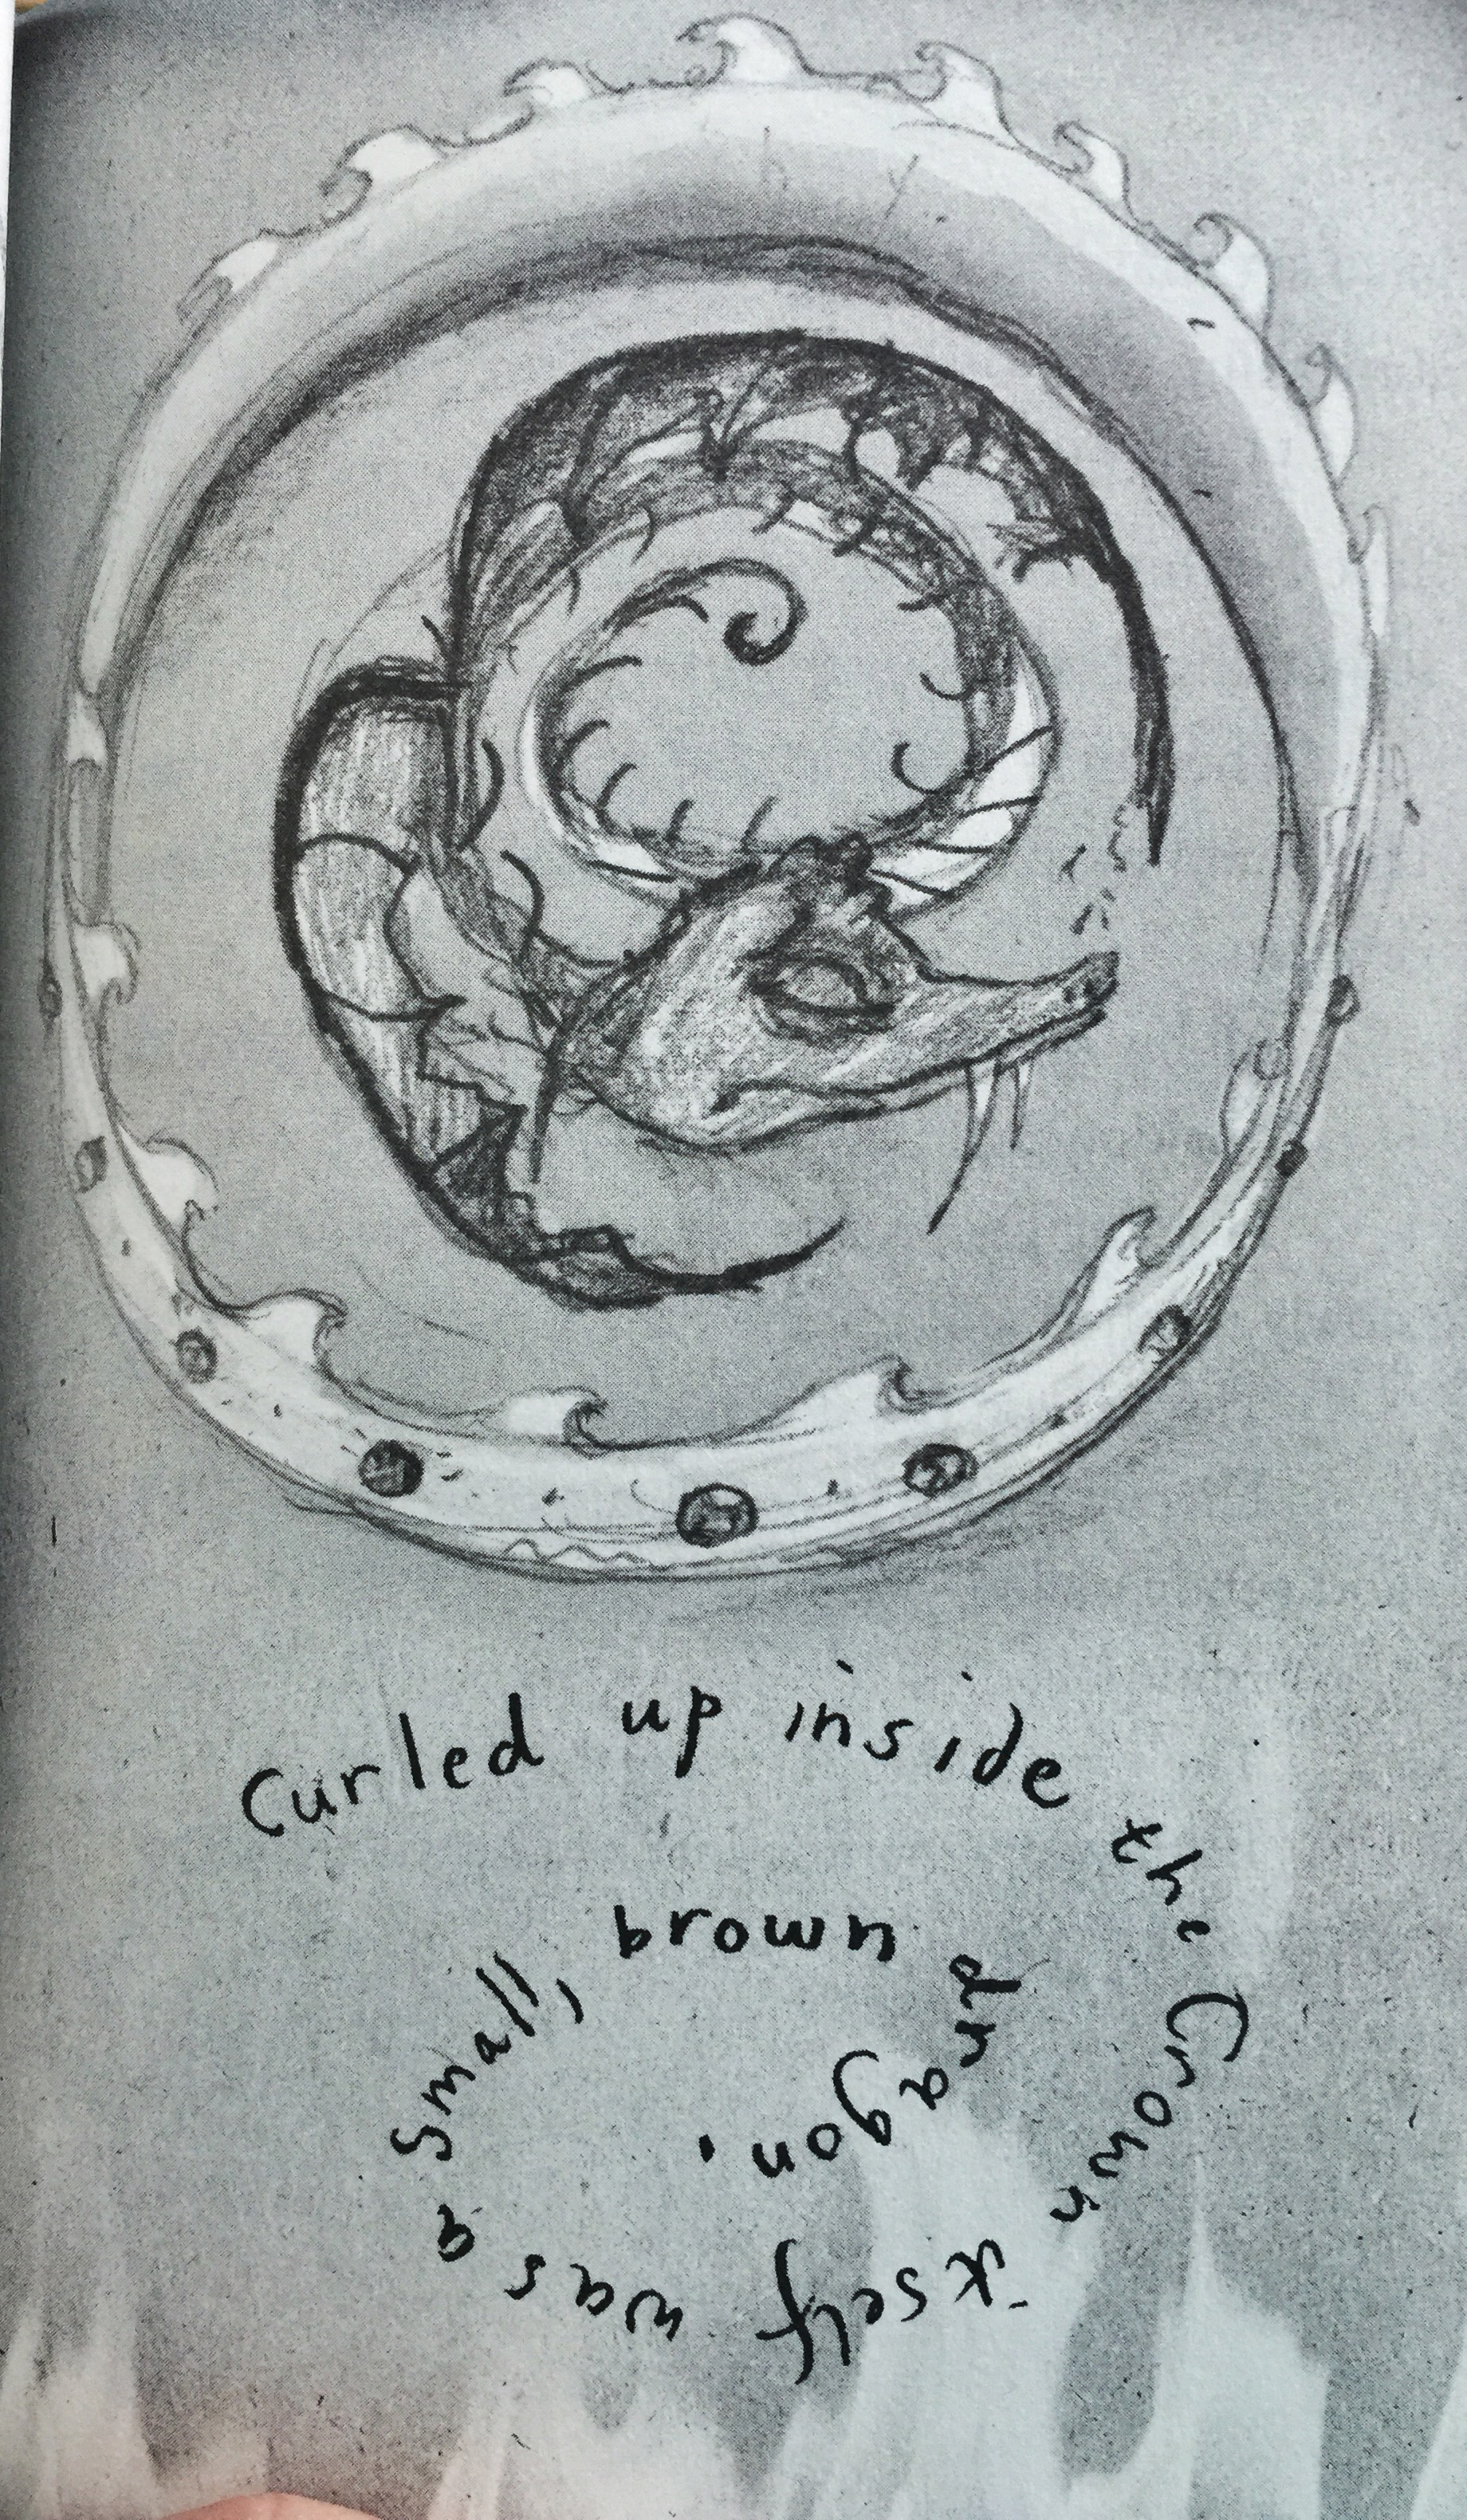 Curled up inside the Crown itself was a small, brown dragon.